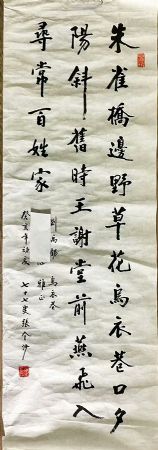 朱雀橋邊野草花烏衣巷口夕
陽斜舊時王謝堂前燕飛入
尋常百姓家
劉禹錫 烏衣巷
雅正
癸亥年
七十七叟張